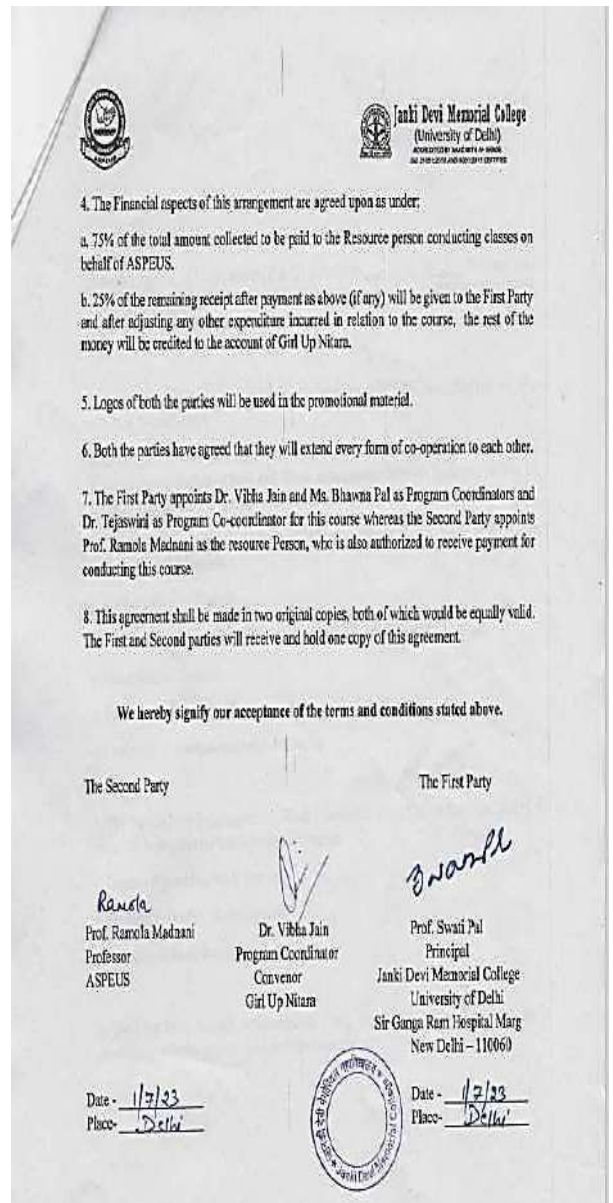 ASPEUS
Janki Devi Memorial College
(University of Delhi)
4. The Financial aspects of this arrangement are agreed upon as under;
a. 75% of the total amount collected to be paid to the Resource person conducting classes on
behalf of ASPEUS.
b. 25% of the remaining receipt after payment as above (if any) will be given to the First Party
and after adjusting any other expenditure incurred in relation to the course, the rest of the
money will be credited to the account of Girl Up Nitara.
5. Logos of both the parties will be used in the promotional material.
6. Both the parties have agreed that they will extend every form of co-operation to each other.
7. The First Party appoints Dr. Vibha Jain and Ms. Bhawna Pal as Program Coordinators and
Dr. Tejaswini as Program Co-coordinator for this course whereas the Second Party appoints
Prof. Ramola Madnani as the resource Person, who is also authorized to receive payment for
conducting this course.
8. This agreement shall be made in two original copies, both of which would be equally valid.
The First and Second parties will receive and hold one copy of this agreement.
We hereby signify our acceptance of the terms and conditions stated above.
The Second Party
The First Party
Ramola
Prof. Ramola Madnani
Professor
ASPEUS
Dr. Vibha Jain
Program Coordinator
Convenor
Girl Up Nitara
Swati Pal
Prof. Swati Pal
Principal
Janki Devi Memorial College
University of Delhi
Sir Ganga Ram Hospital Marg
New Delhi – 110060
Date - 1/7/23
Place- Delhi
Janki Devi Memorial College
Date - 1/7/23
Place- Delhi